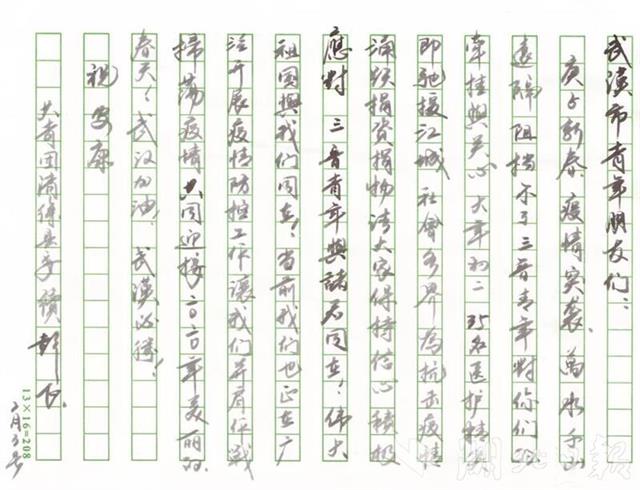 武漢市青年朋友们：
庚子新春，疫情突袭。萬水千山
遠隔阻挡不了三晋青年對你们的
牽挂與关心 大年初二 35名医护精英
即馳援江城 社會各界為抗击疫情
涌跃捐资捐物 请大家保持信心 積极
應對 三晋青年與諸君同在！偉大
祖国與我们同在！当前我们也正在广
泛开展疫情防控工作 讓我们并肩作戰
掃荡疫情 共同迎接二〇二〇年美丽的
春天！武汉加油！武漢必勝！
祝安康
共青团清徐县委
2月3号
13×16=208
湖北日报